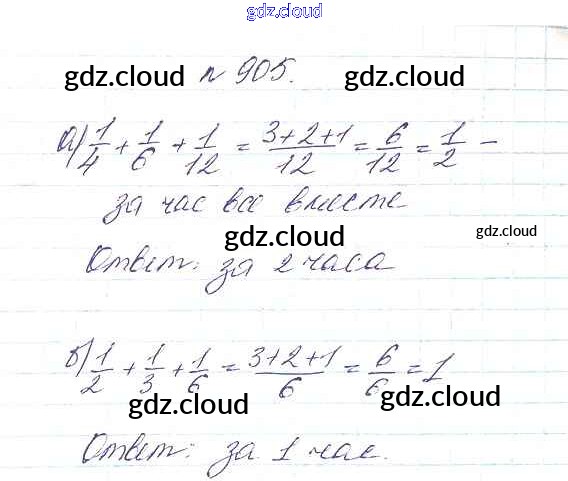 gdz.cloud
gdz.cloud № 905. gdz.cloud
а) 1/4 + 1/6 + 1/12 = (3+2+1)/12 = 6/12 = 1/2 –
за час все вместе
gdz.cloud gdz.cloud
Ответ: за 2 часа
б) 1/2 + 1/3 + 1/6 = (3+2+1)/6 = 6/6 = 1
gdz.cloud gdz.cloud
Ответ: за 1 час.
gdz.cloud